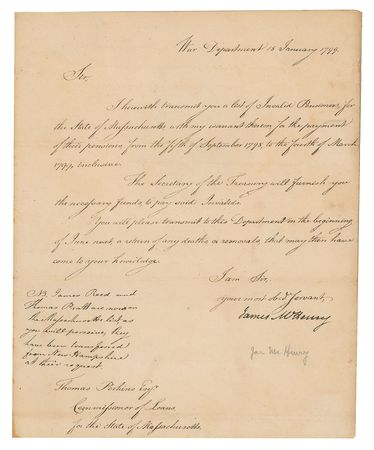 War Department 18 January 1799.
Sir,
I herewith transmit you a list of Invalid Pensioners, for
the State of Massachusetts, with my warrant thereon for the payment
of their pensions, from the fifth of September 1798, to the fourth of March
1799, inclusive.
The Secretary of the Treasury will furnish you
the necessary funds to pay said Invalids.
You will please transmit to this Department in the beginning
of June next, a return of any deaths, or removals, that may then have
come to your knowledge.
I am Sir,
your most obed servant,
James McHenry
NB. James Reed and
Thomas Pratt are now on
the Massachusetts list as
you will perceive, they
have been transferred
from New Hampshire
at their request.
Jas McHenry
Thomas Perkins Esqr
Commissioner of Loans
for the State of Massachusetts.